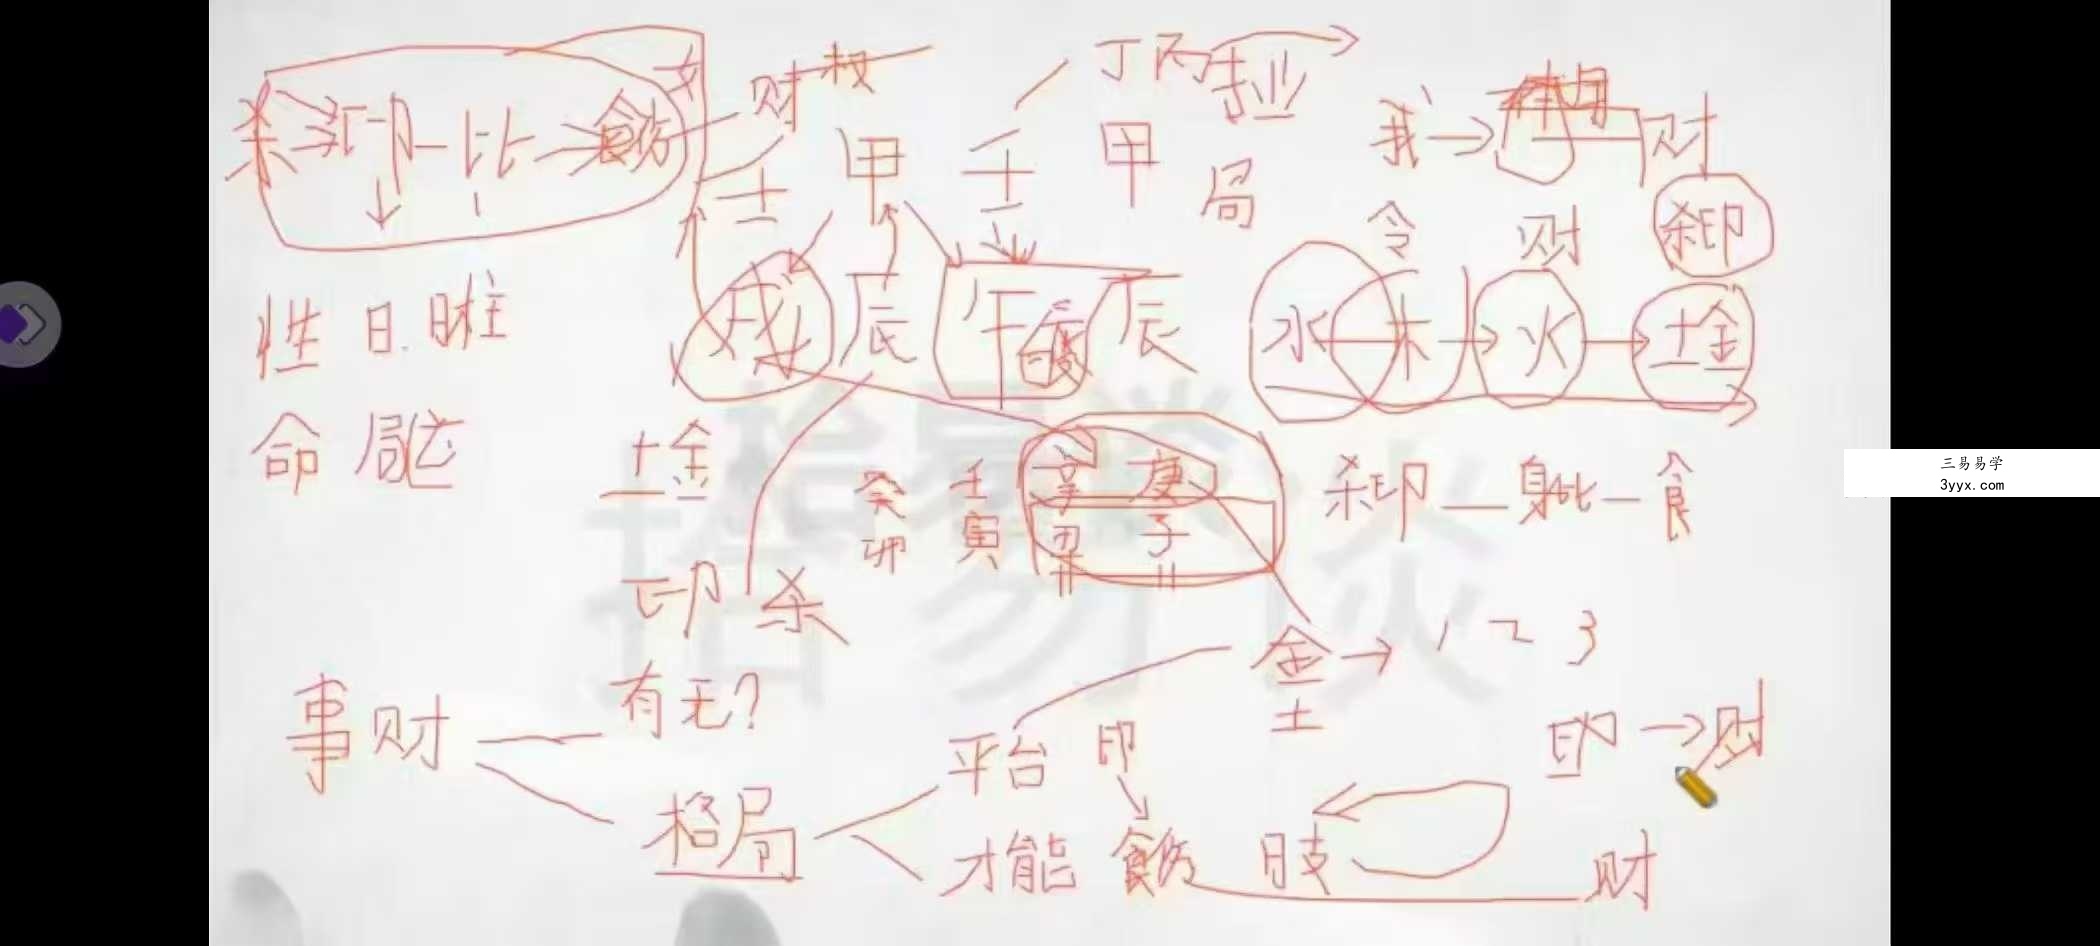 杀 印 比 食伤 财 权 丁丙
壬 甲 壬 甲 局 我 财
令 财 杀印
戌 辰 午 辰 水 木 火 土金
性 日.时柱
命 局
土金 癸 壬 辛 庚 杀印 身比 食
卯 寅 丑 子
印 杀
金 1 2 3
土
事 财 有无?
平台 印 印 财
格局
才能 食伤 日支 财
悟易谈
三易易学
3yyx.com